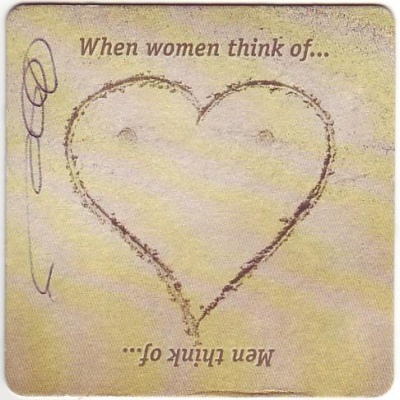 When women think of...
Men think of...